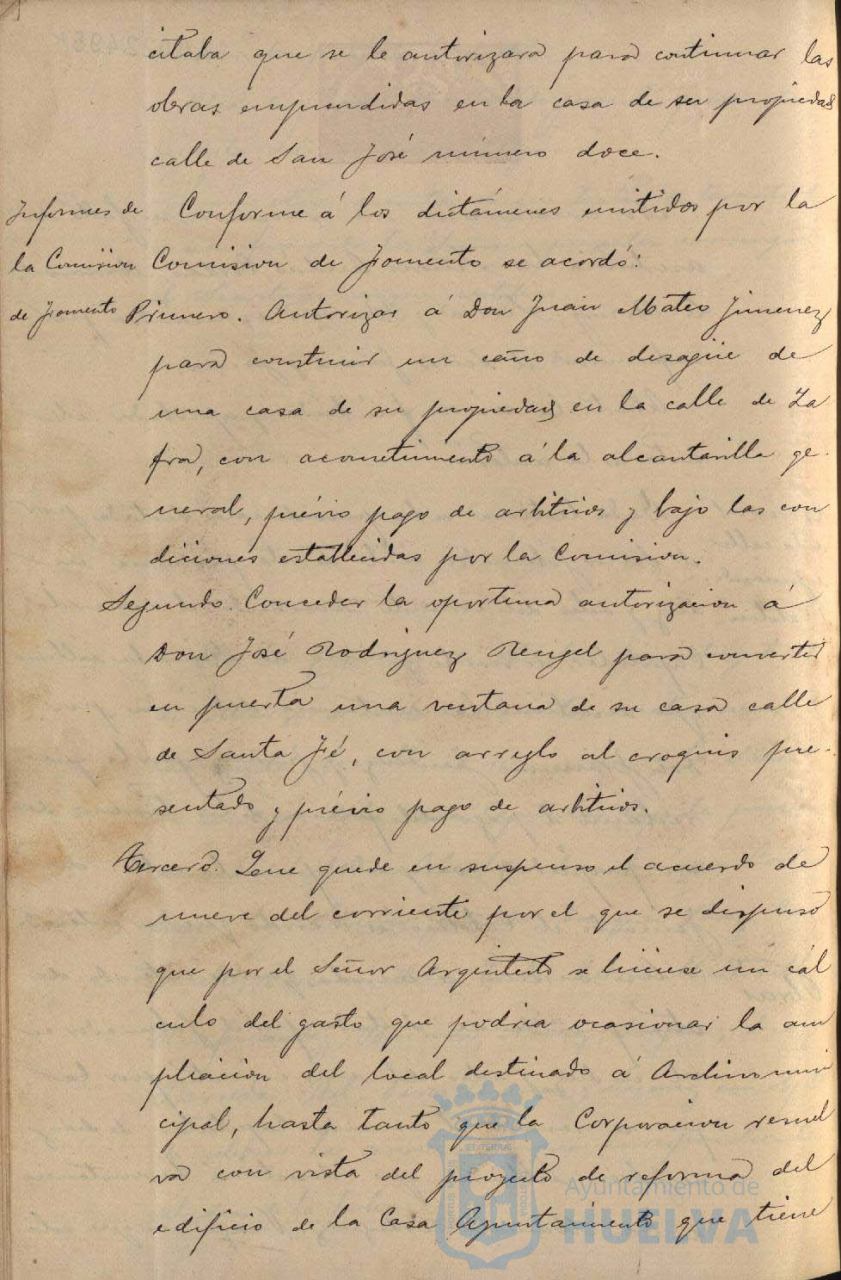 citaba que se le autorizara para continuar las
obras emprendidas en la casa de su propiedad
calle de San José número doce.
Informes de
la Comision
de Fomento
Conforme á los dictámenes emitidos por la
Comision de Fomento se acordó:
Primero. Autorizar á Don Juan Mateo Jimenez
para construir un caño de desagüe de
una casa de su propiedad en la calle de Za
fra, con acometimiento á la alcantarilla ge-
neral, prévio pago de arbitrios y bajo las con
diciones establecidas por la Comision.
Segundo. Conceder la oportuna autorizacion á
Don José Rodriguez Rengel para convertir
en puerta una ventana de su casa calle
de Santa Fé, con arreglo al croquis pre-
sentado y prévio pago de arbitrios.
Tercero. Que quede en suspenso el acuerdo de
nueve del corriente por el que se dispuso
que por el Señor Arquitecto se hiciese un cál
culo del gasto que podria ocasionar la am
pliacion del local destinado á Archivo muni
cipal, hasta tanto que la Corporacion resuel
va con vista del proyecto de reforma del
edificio de la Casa Ayuntamiento que tiene
Ayuntamiento de
HUELVA